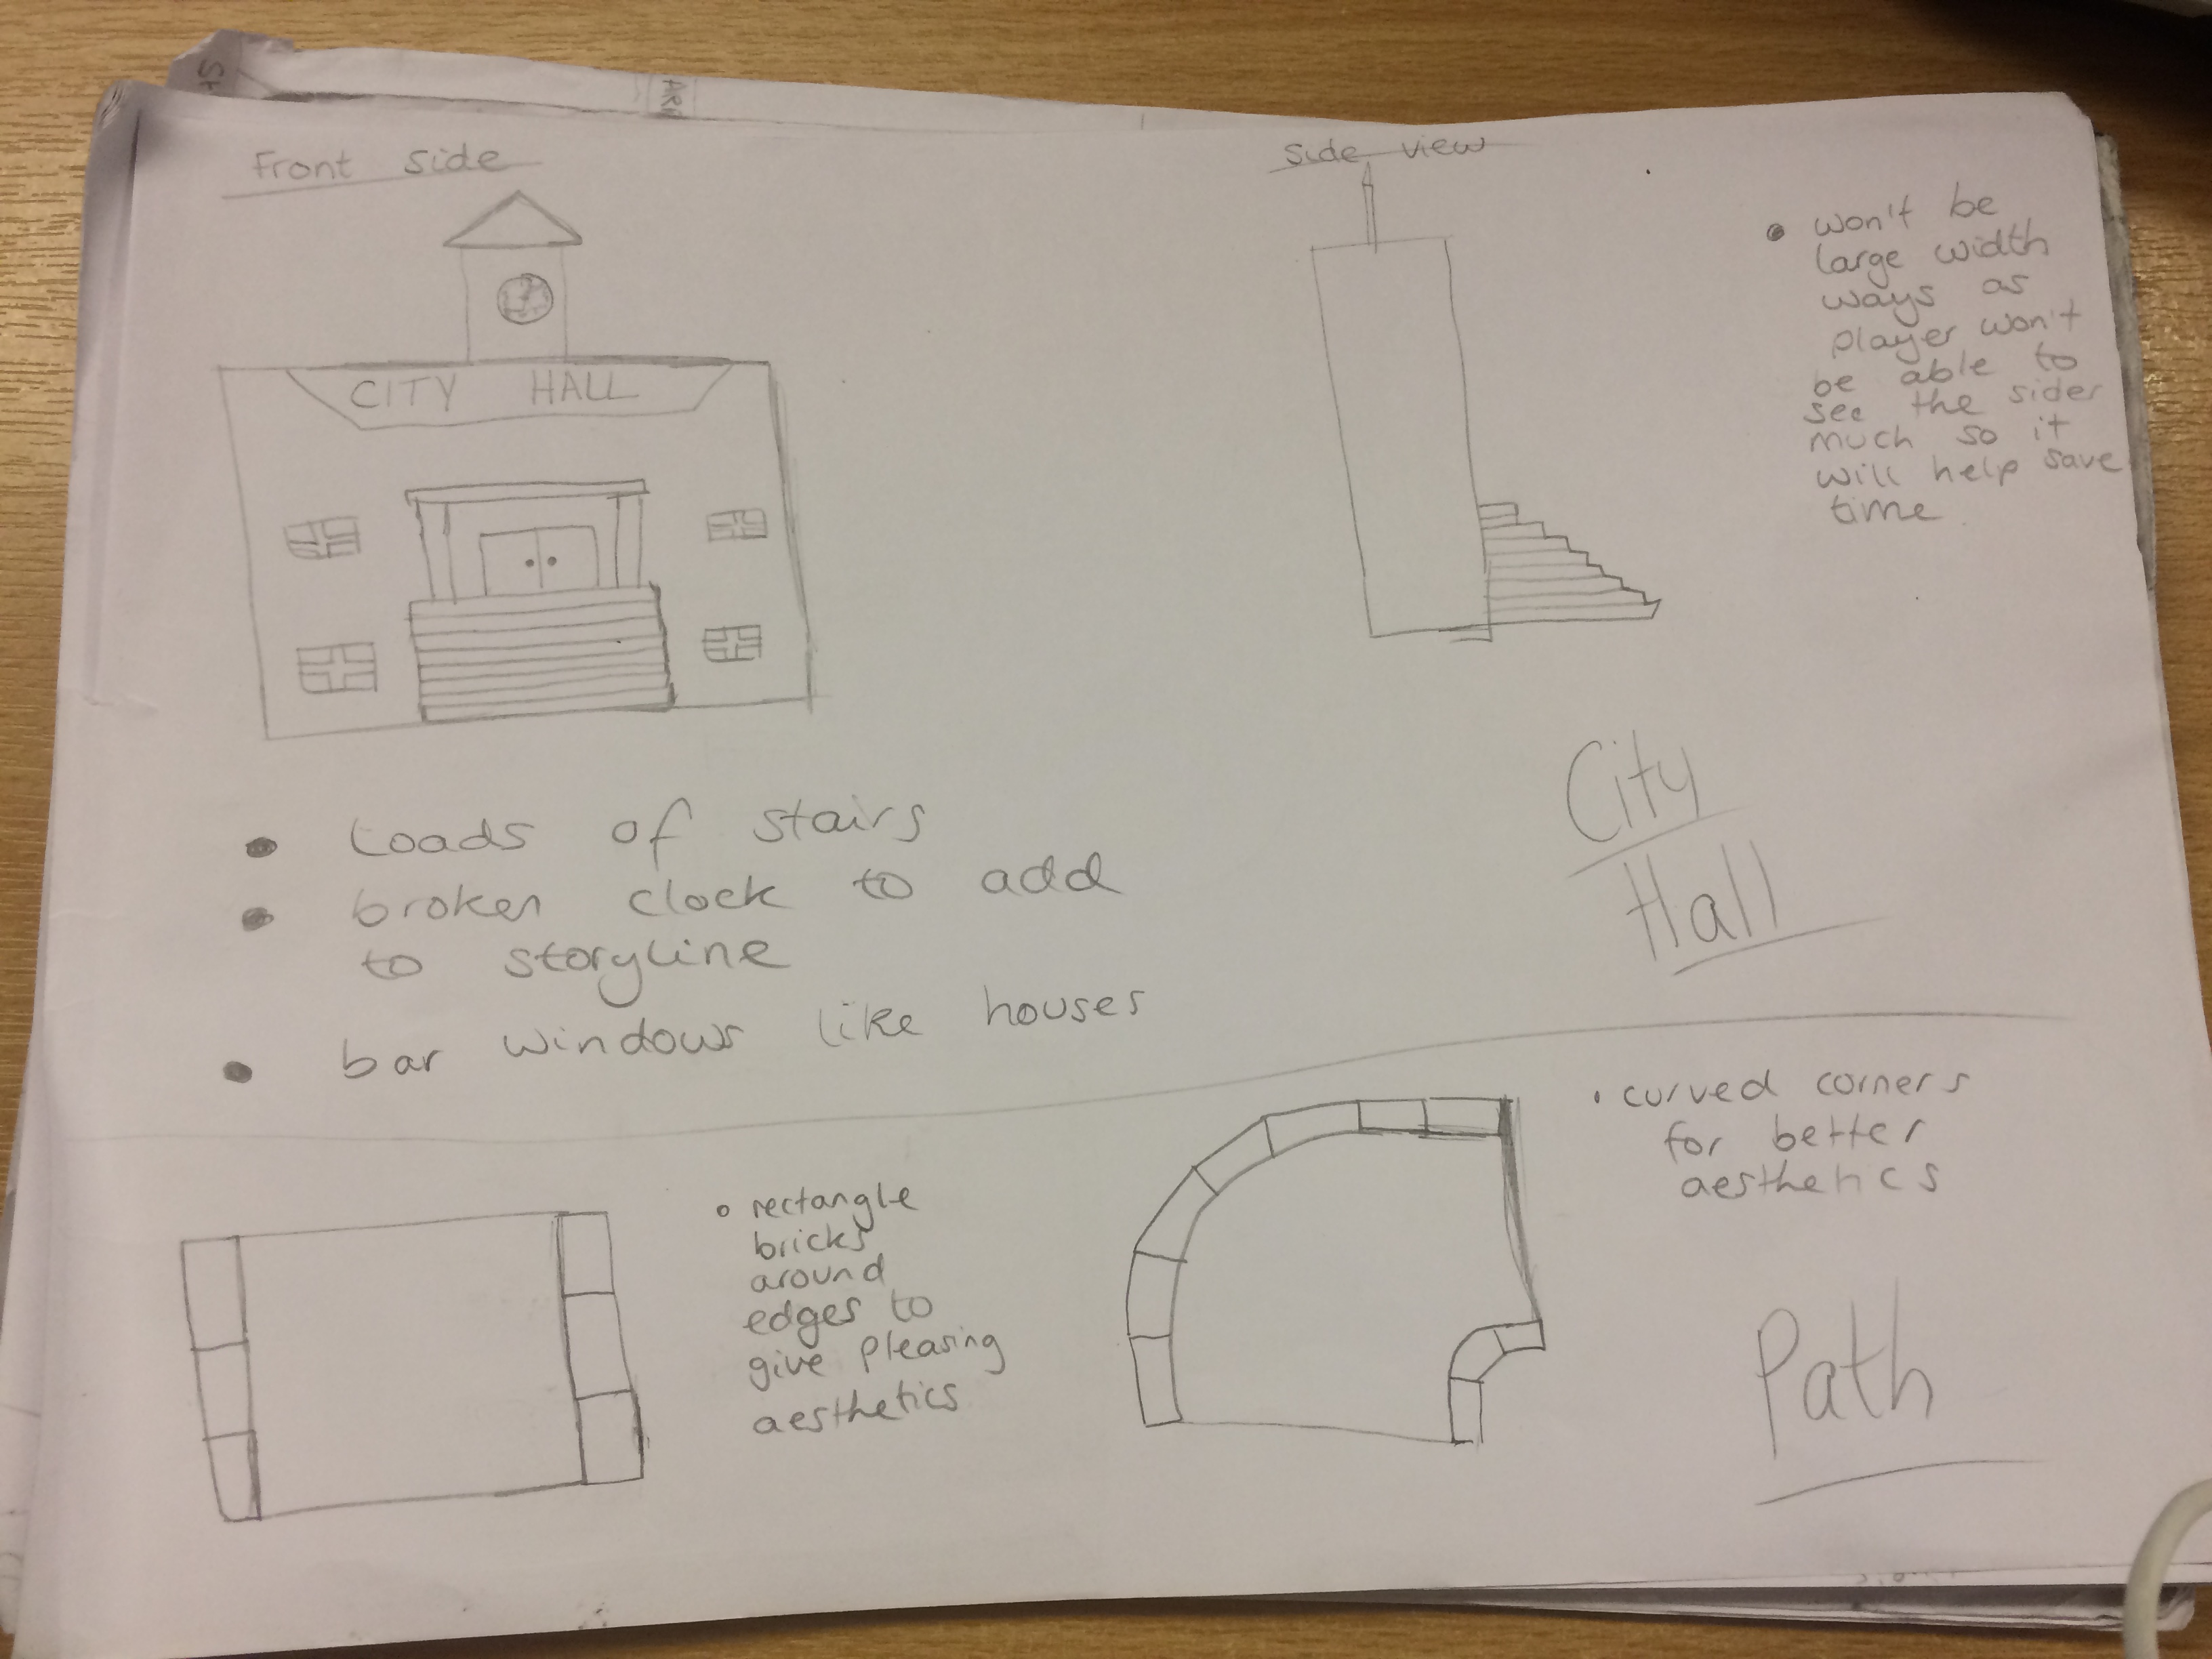 Front side
Side view
CITY HALL
• won't be
large width
ways as
player won't
be able to
see the sides
much so it
will help save
time
• Loads of stairs
• broken clock to add
to storyline
• bar windows like houses
City
Hall
• rectangle
bricks
around
edges to
give pleasing
aesthetics
• curved corners
for better
aesthetics
Path